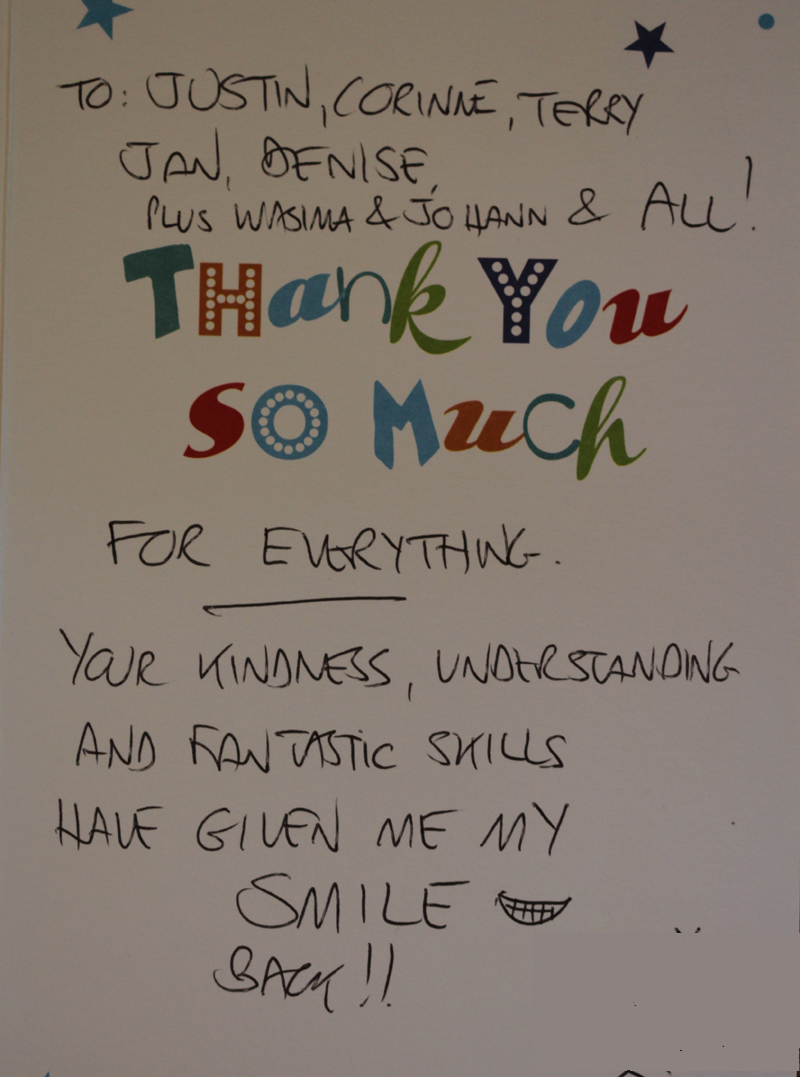 TO: JUSTIN, CORINNE, TERRY
JAN, DENISE,
PLUS WASIMA & JOHANN & ALL!
THank You
SO Much
FOR EVERYTHING.
YOUR KINDNESS, UNDERSTANDING
AND FANTASTIC SKILLS
HAVE GIVEN ME MY
SMILE
BACK!!